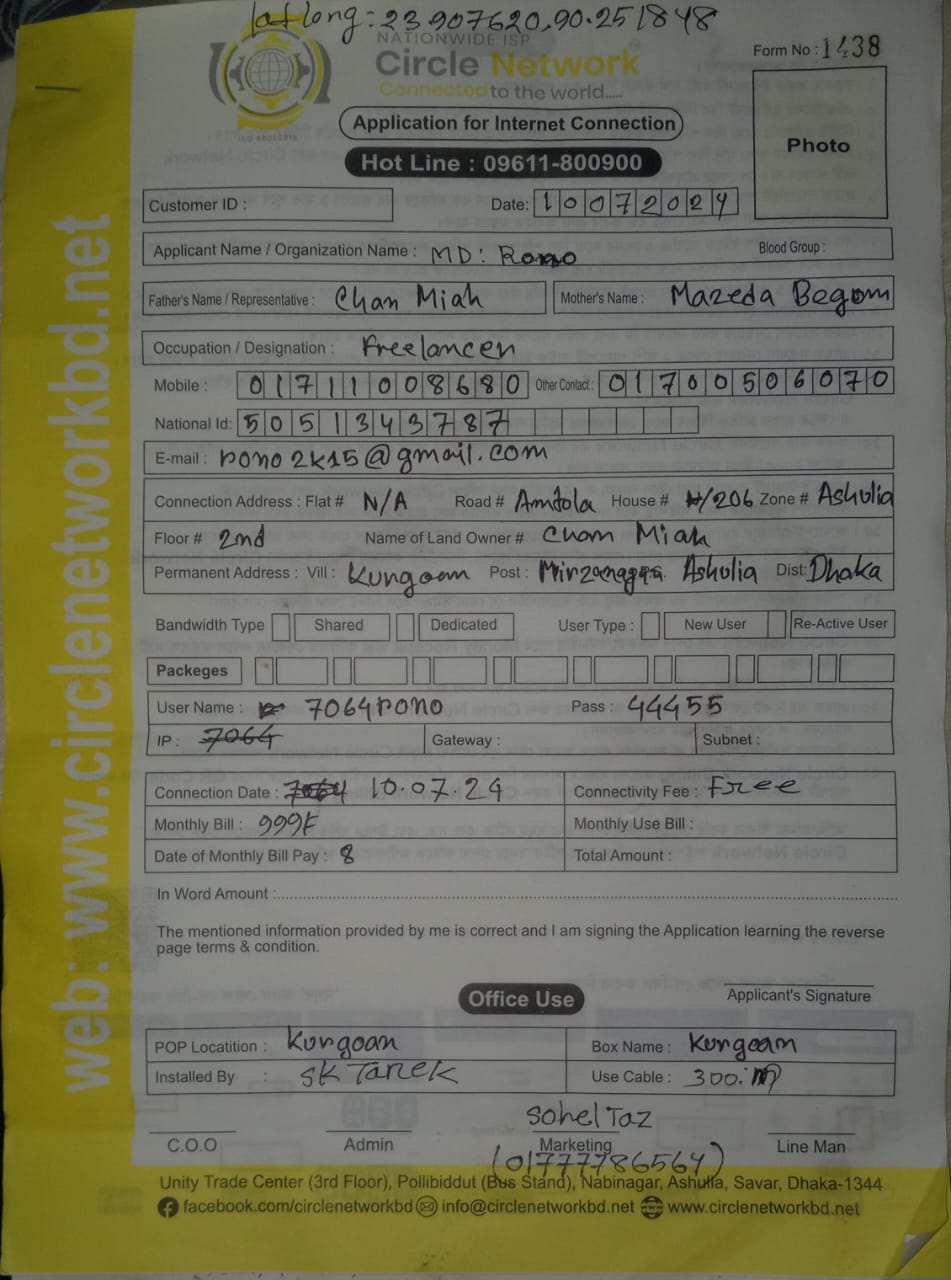 lat long: 23.907620, 90.251848
NATIONWIDE ISP
Form No : 1438
Circle Network
Connected to the world.....
ISO 9001:2015
Application for Internet Connection
Photo
Hot Line : 09611-800900
Customer ID :
Date: 10072024
Applicant Name / Organization Name : MD: Rono
Blood Group :
Father's Name / Representative : Chan Miah
Mother's Name : Mazeda Begom
Occupation / Designation : Freelancer
Mobile : 01711008680 Other Contact : 01700506070
National Id: 5051343787
E-mail : rono2k15@gmail.com
Connection Address : Flat # N/A Road # Amtola House # /206 Zone # Ashulia
Floor # 2nd Name of Land Owner # Chan Miah
Permanent Address : Vill : Kurgoan Post : Ashulia Dist: Dhaka
Bandwidth Type Shared Dedicated User Type : New User Re-Active User
Packeges
User Name : 7064rono Pass : 44455
IP : 7064 Gateway : Subnet :
Connection Date : 10.07.24 Connectivity Fee : Free
Monthly Bill : 999F Monthly Use Bill :
Date of Monthly Bill Pay : 8 Total Amount :
In Word Amount :
The mentioned information provided by me is correct and I am signing the Application learning the reverse
page terms & condition.
Office Use
Applicant's Signature
POP Locatition : Kurgoan Box Name : Kurgoan
Installed By : SK Tarek Use Cable : 300.m
Sohel Taz
C.O.O Admin Marketing Line Man
(01777786564)
Unity Trade Center (3rd Floor), Pollibiddut (Bus Stand), Nabinagar, Ashulia, Savar, Dhaka-1344
facebook.com/circlenetworkbd info@circlenetworkbd.net www.circlenetworkbd.net
web: www.circlenetworkbd.net